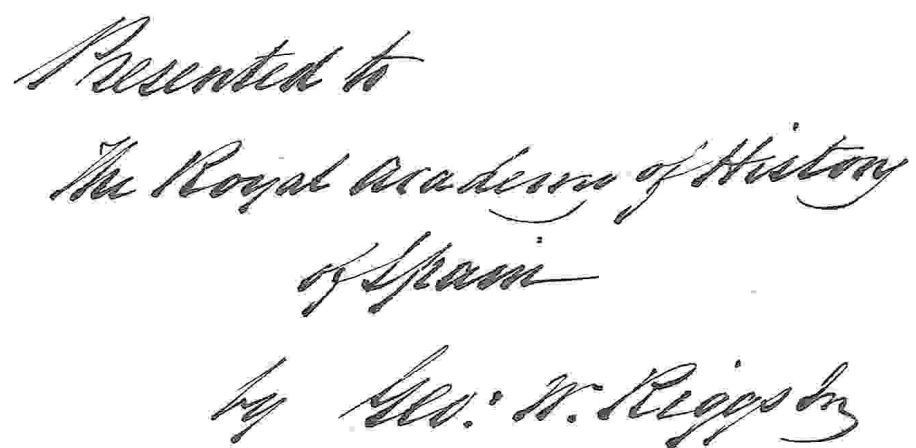 Presented to
The Royal Academy of History
of Spain
by Geo: W. Riggs Jr